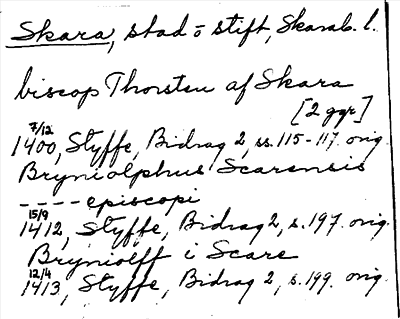 Skara, stad o stift, Skarab. l.
biscop Thorsten af Skara
[2 ggr]
7/12
1400, Styffe, Bidrag 2, ss. 115-117. orig.
Bryniolphus Scarensis
---- episcopi
15/9
1412, Styffe, Bidrag 2, s. 197. orig.
Bryniolff i Scare
12/4
1413, Styffe, Bidrag 2, s. 199. orig.